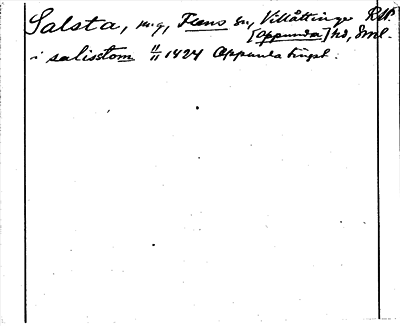 Salsta, m.g, Flens sn, Villåttinge RAP.
[Oppunda] hd, Sml.
i salistom 11/11 1424 Oppunda tingst.